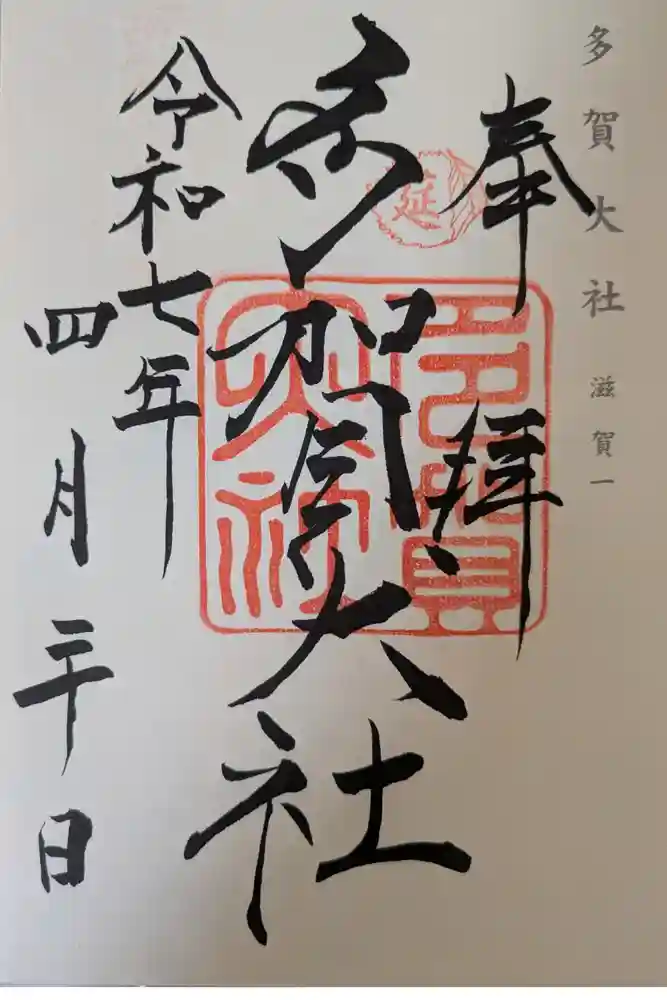 多賀大社 滋賀一
奉拝
延
多賀大社
多賀大社
令和七年
四月二十日